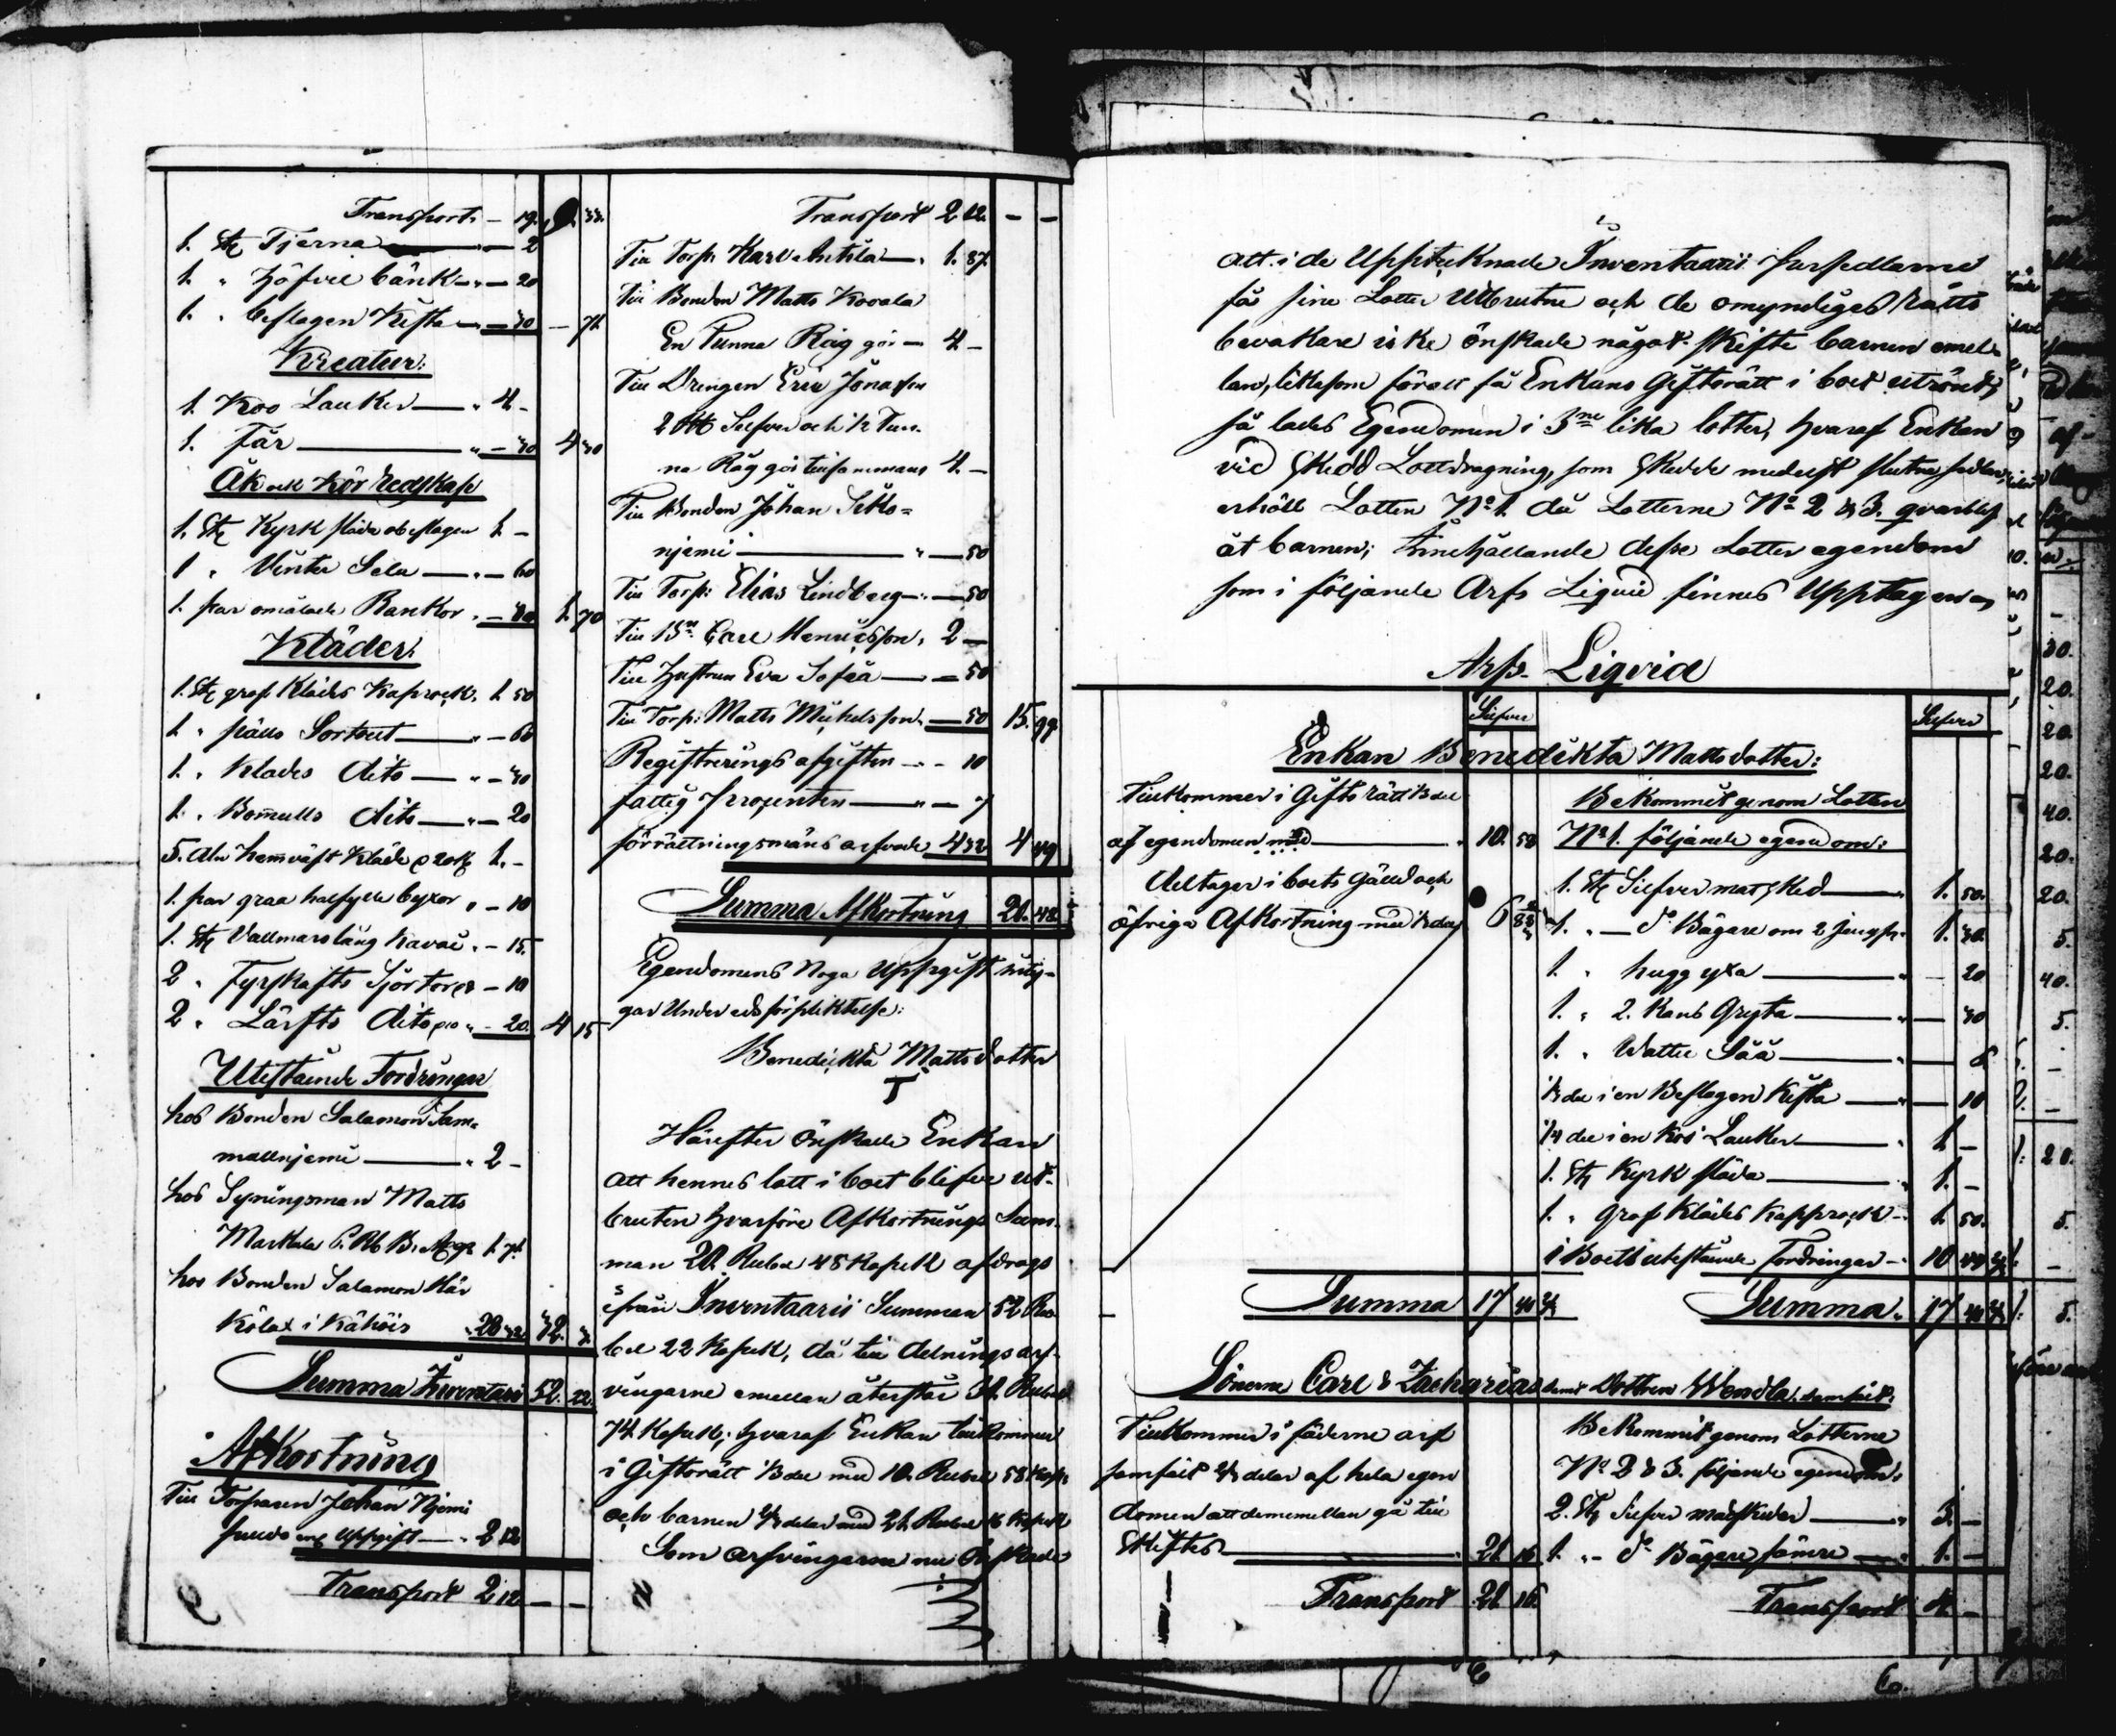 Transport. — 19. 9. 33.
1. St Tjerna — 2
1. " Höfvel bänk — 20
1. " beslagen Kista — 30 — 71.
Kreatur:
1. Koo Lauker — 4 -
1. Får — 30 4 30
Åk och Kör redskap
1. St Kyrk släda obeslagen 1. -
1 " Vinter Sela — 60
1. par omålade Bankor — 80 1. 70
Kläder:
1. St grof Klädes Kaprock. 1. 50
1. " päls Sortout — 60
1. " Klädes dito — 30
1. " Bomulls dito — 20
5. Aln hemväft Kläde 1. -
1. par graa halfylle byxor — 10
1. St Vallmars lång Kavai — 15.
2 " Fyrskafts Sjörtor — 10
2 " Lärfts dito — 20. 4 15
Utestående Fordringar
hos Bonden Salamon Sam-
mallnjemi — 2 -
hos Syningsman Matts
Markula 1. 71.
hos Bonden Salamon Kär
Kölax i Kähöis 28 32. 32. 3.
Summa Inventarii 52. 22.
Afkortning
Till Torparen Johan Njemi
uppgift — 2 12
Transport 2 12 — —
Transport 2 12. — —
Till Torp: Karl Anttila — 1. 87.
Till Bonden Matts Kovala
En Tunna Råg gör — 4 -
Till Drengen Eric Jonasson
2 Silfver och ½ Tun-
na Råg gör tillsammans 4. -
Till Bonden Johan Isko=
njemi — 50
Till Torp: Elias Lindberg — 50
Till Bn Carl Henricsson, 2 —
Till Hustrun Eva Sofia — 50
Till Torp: Matts Michelsson — 50 15. 99.
Registrerings afgiften — 10
fattig procenten — 7
förrättningsmäns arfvode 4 32 4 49
Summa Afkortning 20. 48.
Egendomens Noga Uppgift inty-
gar Under eds förpliktelse:
Benedickta Mattsdotter
T
Härefter önskade Enkan
att hennes lott i boet blifver ut-
bruten hvarföre Afkortnings Sum-
man 20. Rubel 48 Kopek afdrogs
ifrån Inventaarii Summan 52 Ru-
bel 22 Kopek, då till delnings arf-
vingarne emellan återstår 31. Rubel
74 Kopek; hvaraf Enkan tillkommer
i Giftorätt ⅓ del med 10. Rubel 58 Kopk
och barnen ⅔ delar med 21. Rubel 16 Kopek
Som arfvingarne nu önskade
att i de Upptecknade Inventaarii Persedlarne
få sine Lotter Utbrutne och de omyndiges Rätts
bevakare icke önskade något skifte barnen emel-
lan, likasom förat få Enkans Giftorätt i boet utrönt,
så lades Egendomen i 3ne lika lotter, hvaraf Enkan
vid skedd Lottdragning, som skedde medelst slutna sedlar,
erhöll Lotten No 1. då Lotterne No 2 & 3. qvarblef
åt barnen; Innehållande desse Lotter egendom
som i följande Arfs Liqvid finnes Upptagen
Arfs- Liqvid
Silfver
Silfver
Enkan Benedikta Mattsdotter:
Tillkommer i Gifto rätt ⅓ del
af egendomen med — 10. 58
deltager i boets Gäld och
öfriga Afkortning med ⅓ del 6 82
Summa 17 40 ⅔
Bekommit genom Lotten
No 1. följande egendom:
1. St Silfver matsked — 1. 50.
1. " — do Bägare om 2 jungfr. 1. 30.
1. " hugg yxa — 20
1. " 2. Kans Gryta — 30
1. " Watte Såå — 6
⅓ del i en Beslagen Kista — 10
¼ del i en Ko Lauker — 1 -
1. St Kyrk släda — 1. -
1. " Grof Klädes Kapprock — 1. 50.
i Boets utestående Fordringar — 10 44 ⅔
Summa. 17 40 ⅔
Sönerne Carl & Zacharias samt Dottren Wendla, samfält:
Tillkommer i fäderne arf
samfält ⅔ delar af hela egen
domen att dememellan gå till
Skiftes — 21. 16
Transport 21. 16.
Bekommit genom Lotterne
No 2 & 3. följande egendom:
2. St Silfver matskedar — 3. —
1. " - do Bägare sämre — 1. —
Transport 4. -